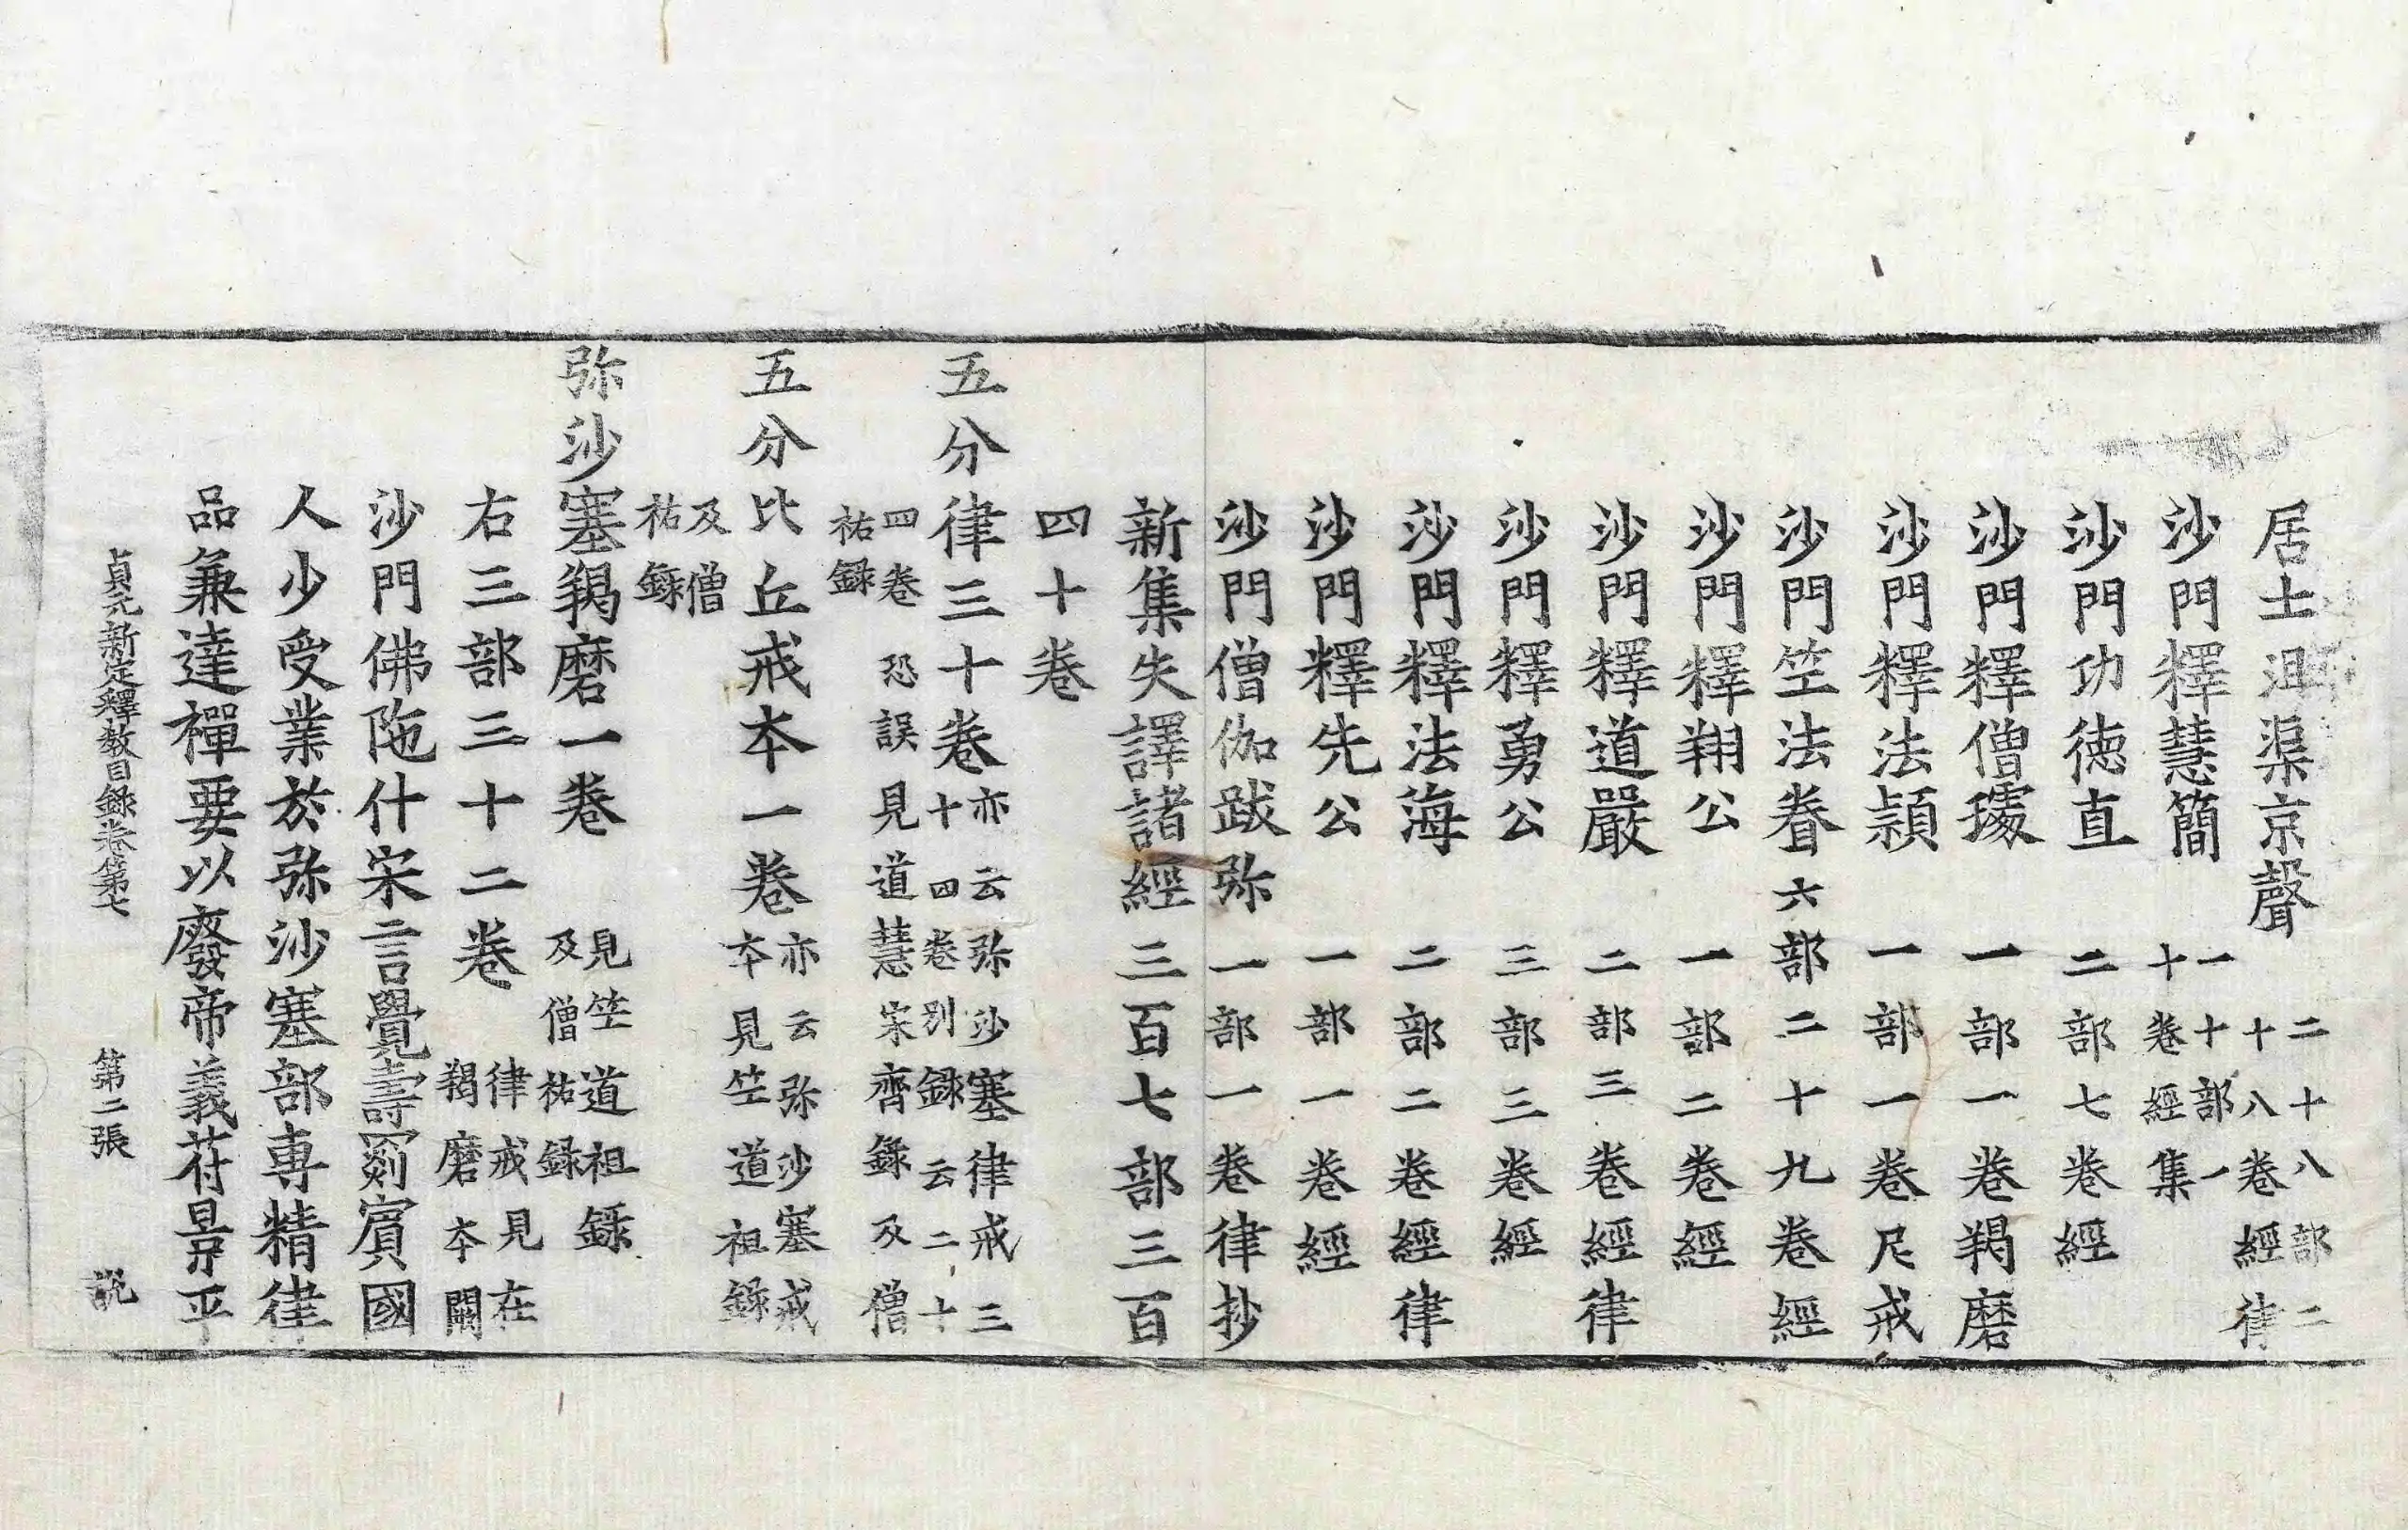 居士沮渠京聲 二十八部二十八卷經律
沙門釋慧簡 一十部一十卷經集
沙門功德直 二部七卷經
沙門釋僧璩 一部一卷羯磨
沙門釋法頴 一部一卷尼戒
沙門竺法眷 六部二十九卷經
沙門釋翔公 一部二卷經
沙門釋道嚴 二部三卷經律
沙門釋勇公 三部三卷經
沙門釋法海 二部二卷經律
沙門釋先公 一部一卷經
沙門僧伽跋弥 一部一卷律抄
新集失譯諸經 三百七部三百
四十卷
五分律三十卷 亦云弥沙塞律戒三十四卷別録云二十
四卷恐誤見道慧宋齊錄及僧祐録
五分比丘戒夲一卷 亦云弥沙塞戒夲見竺道祖錄
及僧祐錄
弥沙塞羯磨一卷 見竺道祖錄及僧祐録
右三部三十二卷 律戒見在羯磨夲闕
沙門佛陁什宋言覺壽罽賓國
人少受業於弥沙塞部專精律
品兼達禪要以廢帝義苻景平
貞元新定釋教目録卷第七 第二張 説